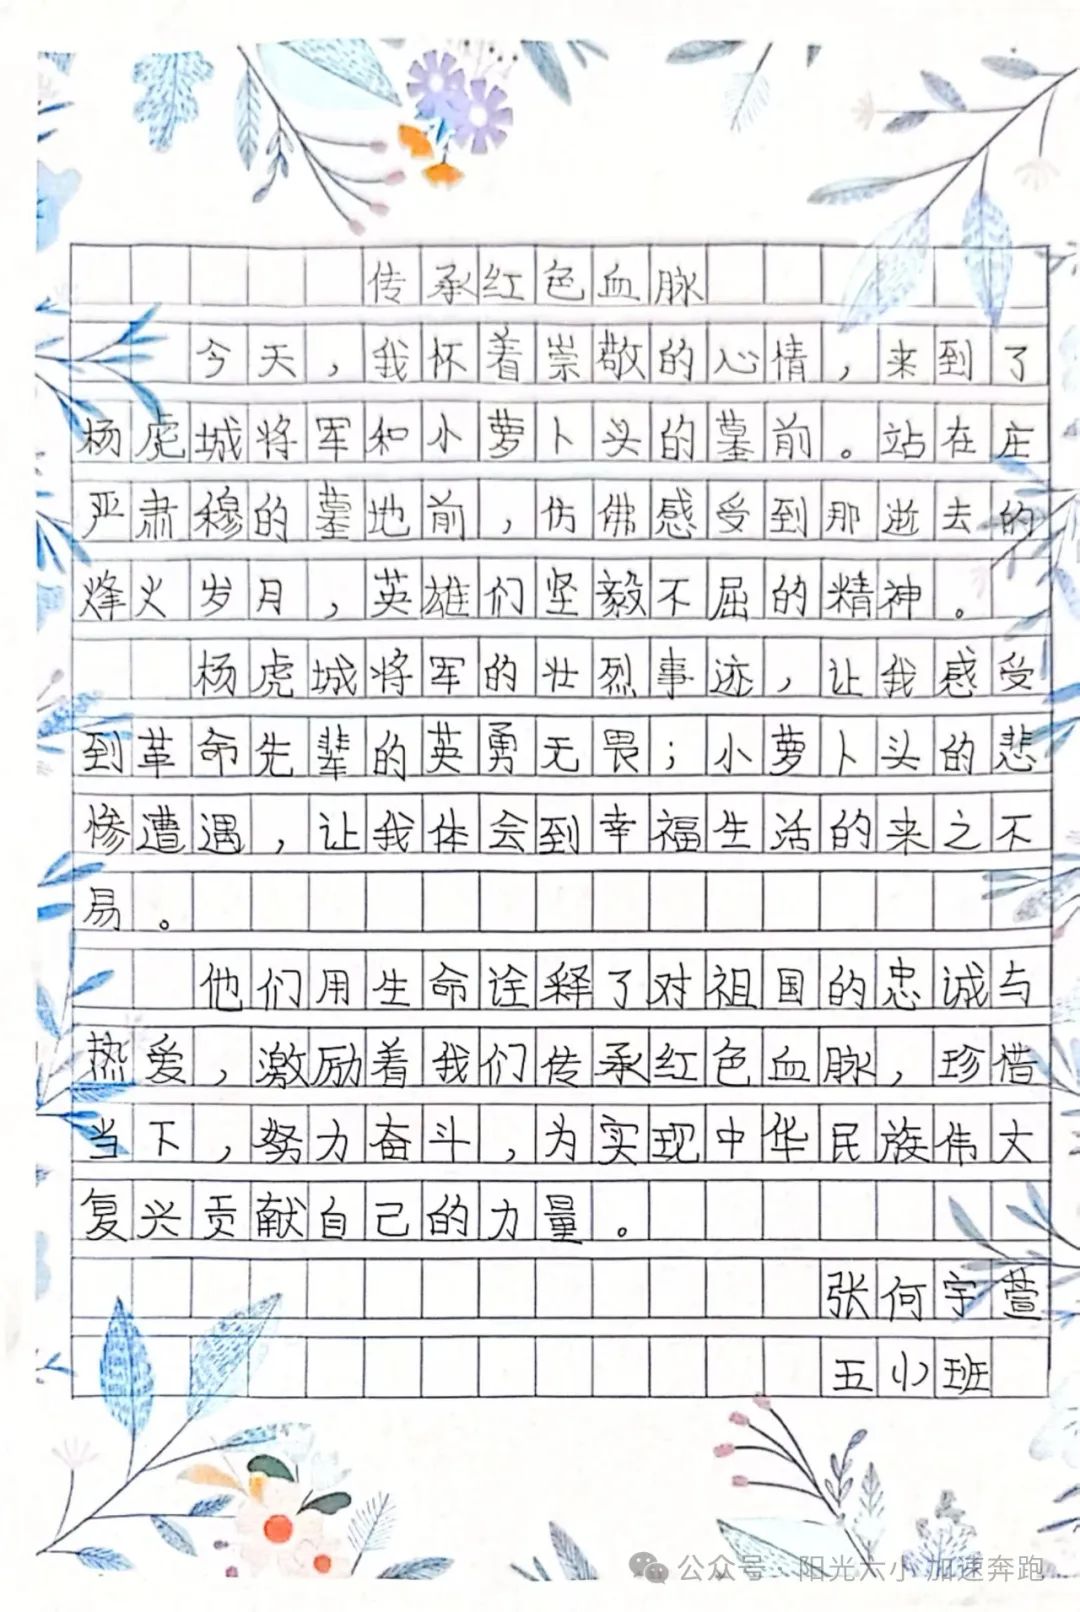 传承红色血脉
今天，我怀着崇敬的心情，来到了
杨虎城将军和小萝卜头的墓前。站在庄
严肃穆的墓地前，仿佛感受到那逝去的
烽火岁月，英雄们坚毅不屈的精神。
杨虎城将军的壮烈事迹，让我感受
到革命先辈的英勇无畏；小萝卜头的悲
惨遭遇，让我体会到幸福生活的来之不
易。
他们用生命诠释了对祖国的忠诚与
热爱，激励着我们传承红色血脉，珍惜
当下，努力奋斗，为实现中华民族伟大
复兴贡献自己的力量。
张何宇萱
五小班
公众号·阳光六小 加速奔跑